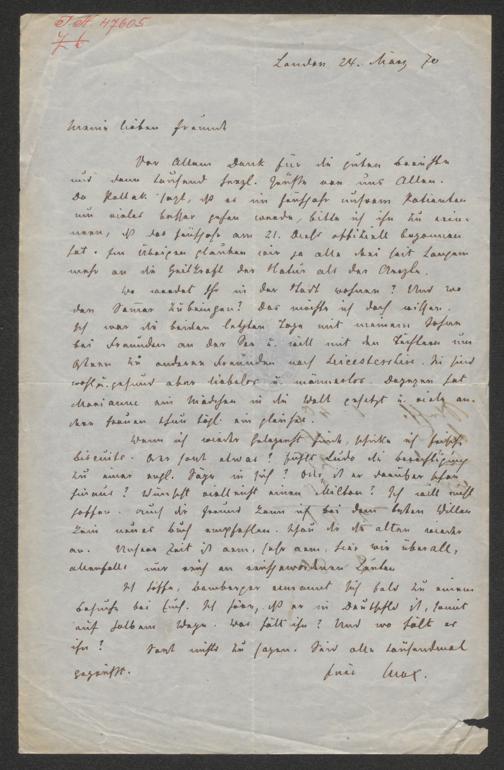 I. N. 47605
London 24. März 70
Meine lieben Freunde
Vor Allem Dank für die guten Berichte
und dann tausend herzl. Grüße von uns Allen.
Da Pollak sagt, daß es im Frühjahr unserem Patienten
um vieles besser gehen werde, bitte ich ihn zu erin-
nern, daß das Frühjahr am 21. dieß offiziell begonnen
hat. Im Übrigen glauben wir ja alle drei seit Langem
mehr an die Heilkraft der Natur als der Aerzte.
Wo werdet Ihr in der Stadt wohnen? Und wo
den Sommer zubringen? Das möchte ich doch wissen.
Ich war die beiden letzten Tage mit meinem Sohne
bei Freunden an der See u. will mit den Töchtern um
Ostern zu anderen Freunden nach Leicestershire. Sie sind
wohl u. gesund aber lieblos u. männerlos. Dagegen hat
Marianne ein Mädchen in die Welt gesetzt u. viele an-
dere Frauen thun tägl. ein gleiches.
Wenn ich wieder Gelegenheit finde, schicke ich frische
biscuits. Oder sonst etwas? Fühlt Ludo die Berechtigung
zu einer engl. Säge in sich? Oder ist er darüber schon
hinaus? Wünscht vielleicht einen Milton? Ich will nicht
hoffen. Auch der Freund kann ich bei dem besten Willen
kein neues Buch empfehlen. Schau Dir die alten wieder
an. Unsere Zeit ist arm, sehr arm, hier wie überall,
allenfalls nur reich an reichgewordenen Leuten
Ich hoffe, Bamberger ermannt sich bald zu einem
Besuche bei Euch. Ich höre, daß er in Deutschld ist, somit
auf halbem Wege. Was hält ihn? Und wo hält er
ihn? Sonst nichts zu sagen. Seid alle tausendmal
gegrüßt.
Euer Max.